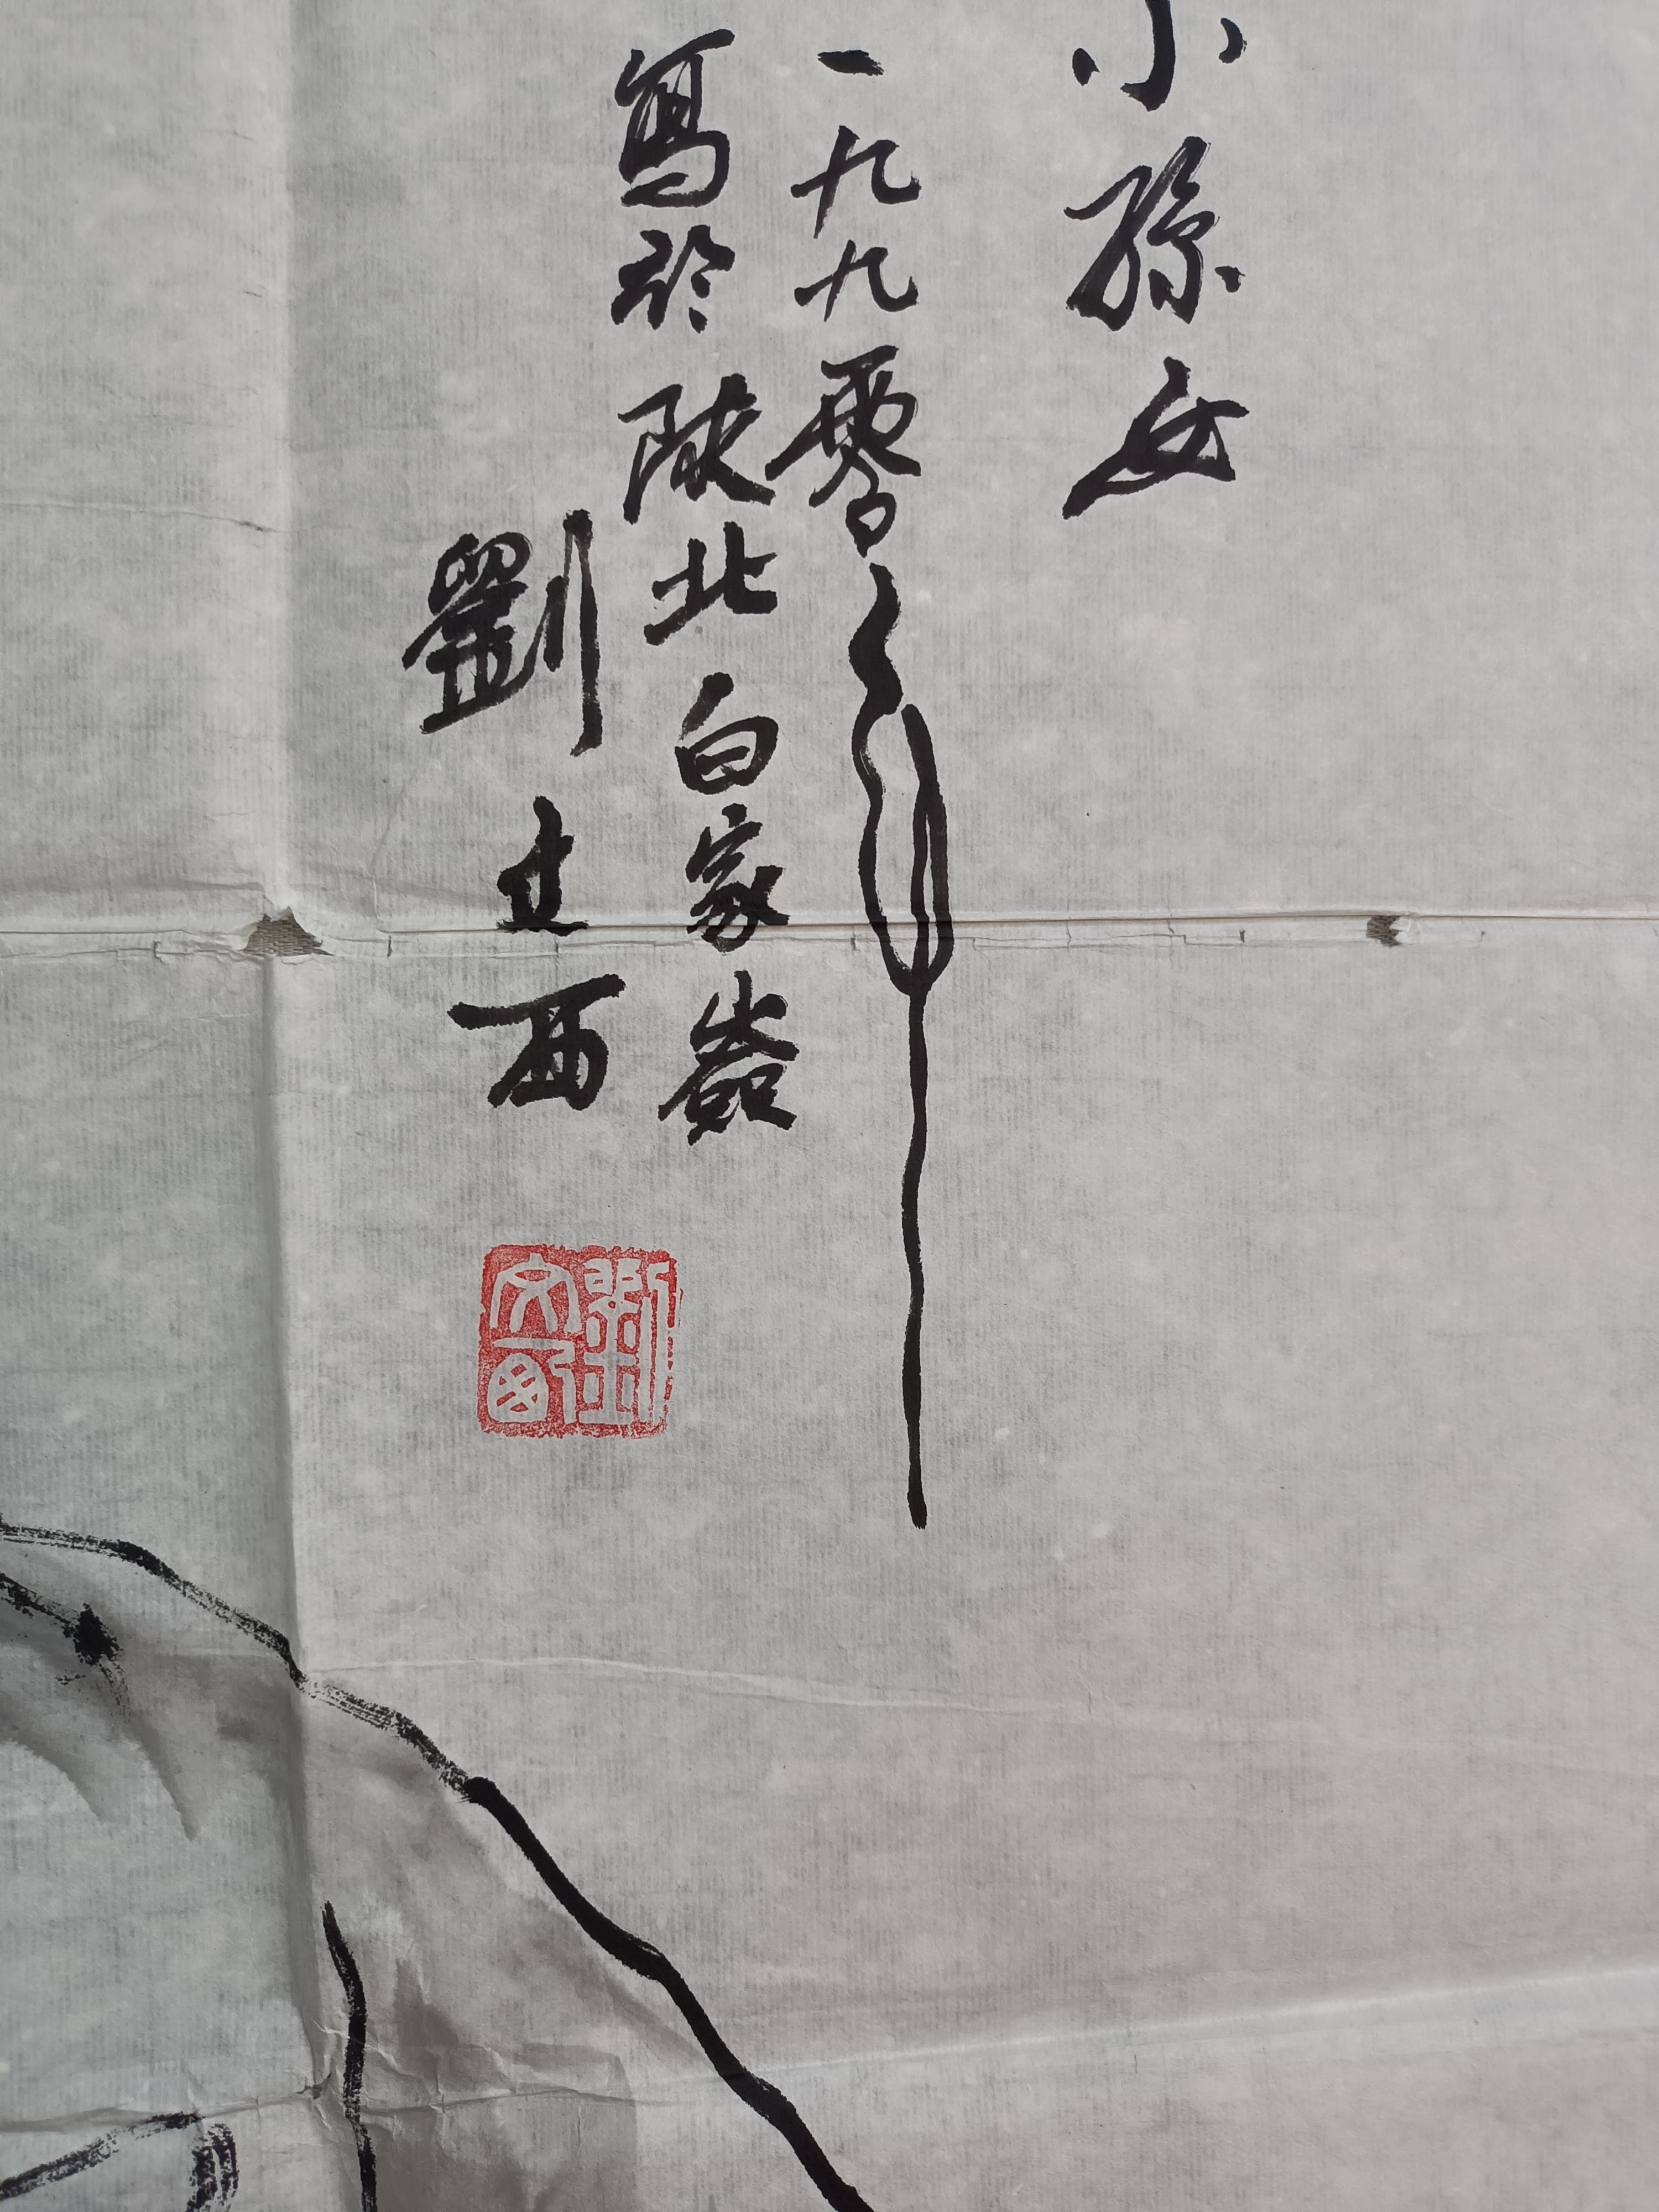 小孫女
一九九零年
寫於陝北白家嵓
劉文西
劉文西